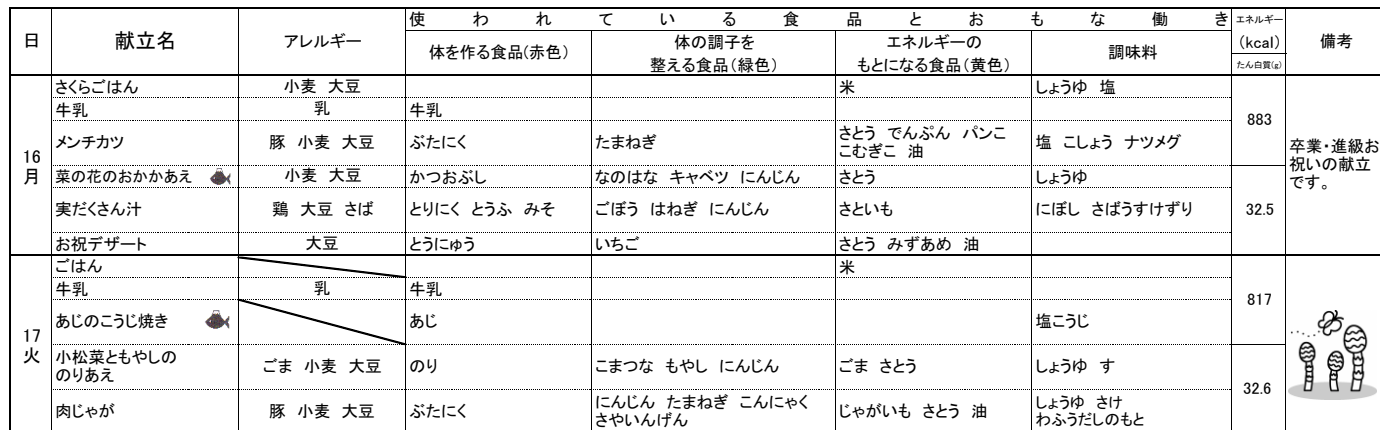 日 献立名 アレルギー 使われている食品とおもな働き エネルギー(kcal) たん白質(g) 備考
体を作る食品(赤色) 体の調子を整える食品(緑色) エネルギーのもとになる食品(黄色) 調味料
16月
さくらごはん 小麦 大豆 米 しょうゆ 塩
牛乳 乳 牛乳
883
メンチカツ 豚 小麦 大豆 ぶたにく たまねぎ さとう でんぷん パンこ こむぎこ 油 塩 こしょう ナツメグ
卒業・進級お祝いの献立です。
菜の花のおかかあえ 小麦 大豆 かつおぶし なのはな キャベツ にんじん さとう しょうゆ
実だくさん汁 鶏 大豆 さば とりにく とうふ みそ ごぼう はねぎ にんじん さといも にぼし さばうすけずり
32.5
お祝デザート 大豆 とうにゅう いちご さとう みずあめ 油
17火
ごはん 米
牛乳 乳 牛乳
817
あじのこうじ焼き あじ 塩こうじ
小松菜ともやしののりあえ ごま 小麦 大豆 のり こまつな もやし にんじん ごま さとう しょうゆ す
32.6
肉じゃが 豚 小麦 大豆 ぶたにく にんじん たまねぎ こんにゃく さやいんげん じゃがいも さとう 油 しょうゆ さけ わふうだしのもと